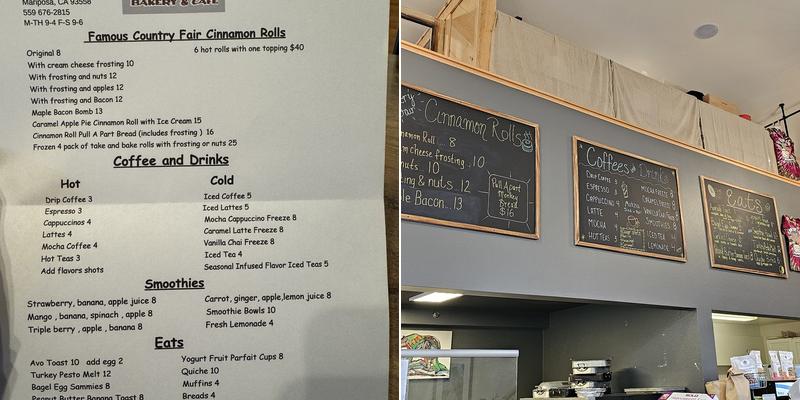 Mariposa, CA 93558
559 676-2815
M-TH 9-4 F-S 9-6
BAKERY & CAFE
Famous Country Fair Cinnamon Rolls
Original 8
6 hot rolls with one topping $40
With cream cheese frosting 10
With frosting and nuts 12
With frosting and apples 12
With frosting and Bacon 12
Maple Bacon Bomb 13
Caramel Apple Pie Cinnamon Roll with Ice Cream 15
Cinnamon Roll Pull A Part Bread (includes frosting ) 16
Frozen 4 pack of take and bake rolls with frosting or nuts 25
Coffee and Drinks
Hot
Drip Coffee 3
Espresso 3
Cappuccinos 4
Lattes 4
Mocha Coffee 4
Hot Teas 3
Add flavors shots
Cold
Iced Coffee 5
Iced Lattes 5
Mocha Cappuccino Freeze 8
Caramel Latte Freeze 8
Vanilla Chai Freeze 8
Iced Tea 4
Seasonal Infused Flavor Iced Teas 5
Smoothies
Strawberry, banana, apple juice 8
Mango , banana, spinach , apple 8
Triple berry , apple , banana 8
Carrot, ginger, apple,lemon juice 8
Smoothie Bowls 10
Fresh Lemonade 4
Eats
Avo Toast 10 add egg 2
Turkey Pesto Melt 12
Bagel Egg Sammies 8
Peanut Butter Banana Toast 8
Yogurt Fruit Parfait Cups 8
Quiche 10
Muffins 4
Breads 4
Cinnamon Rolls
Roll ... 8
cheese frosting . 10
nuts . 10
& nuts . 12
Bacon... 13
Pull Apart
Monkey
Bread
$16
Coffees & Drinks
Drip Coffee 3
Espresso 3
Cappuccino 4
Latte 4
Mocha 4
Hot Teas 3
Mocha Freeze 8
Caramel Freeze 8
Vanilla Chai Freeze 8
Smoothies 8
Iced Tea 4
Lemonade 4
Eats